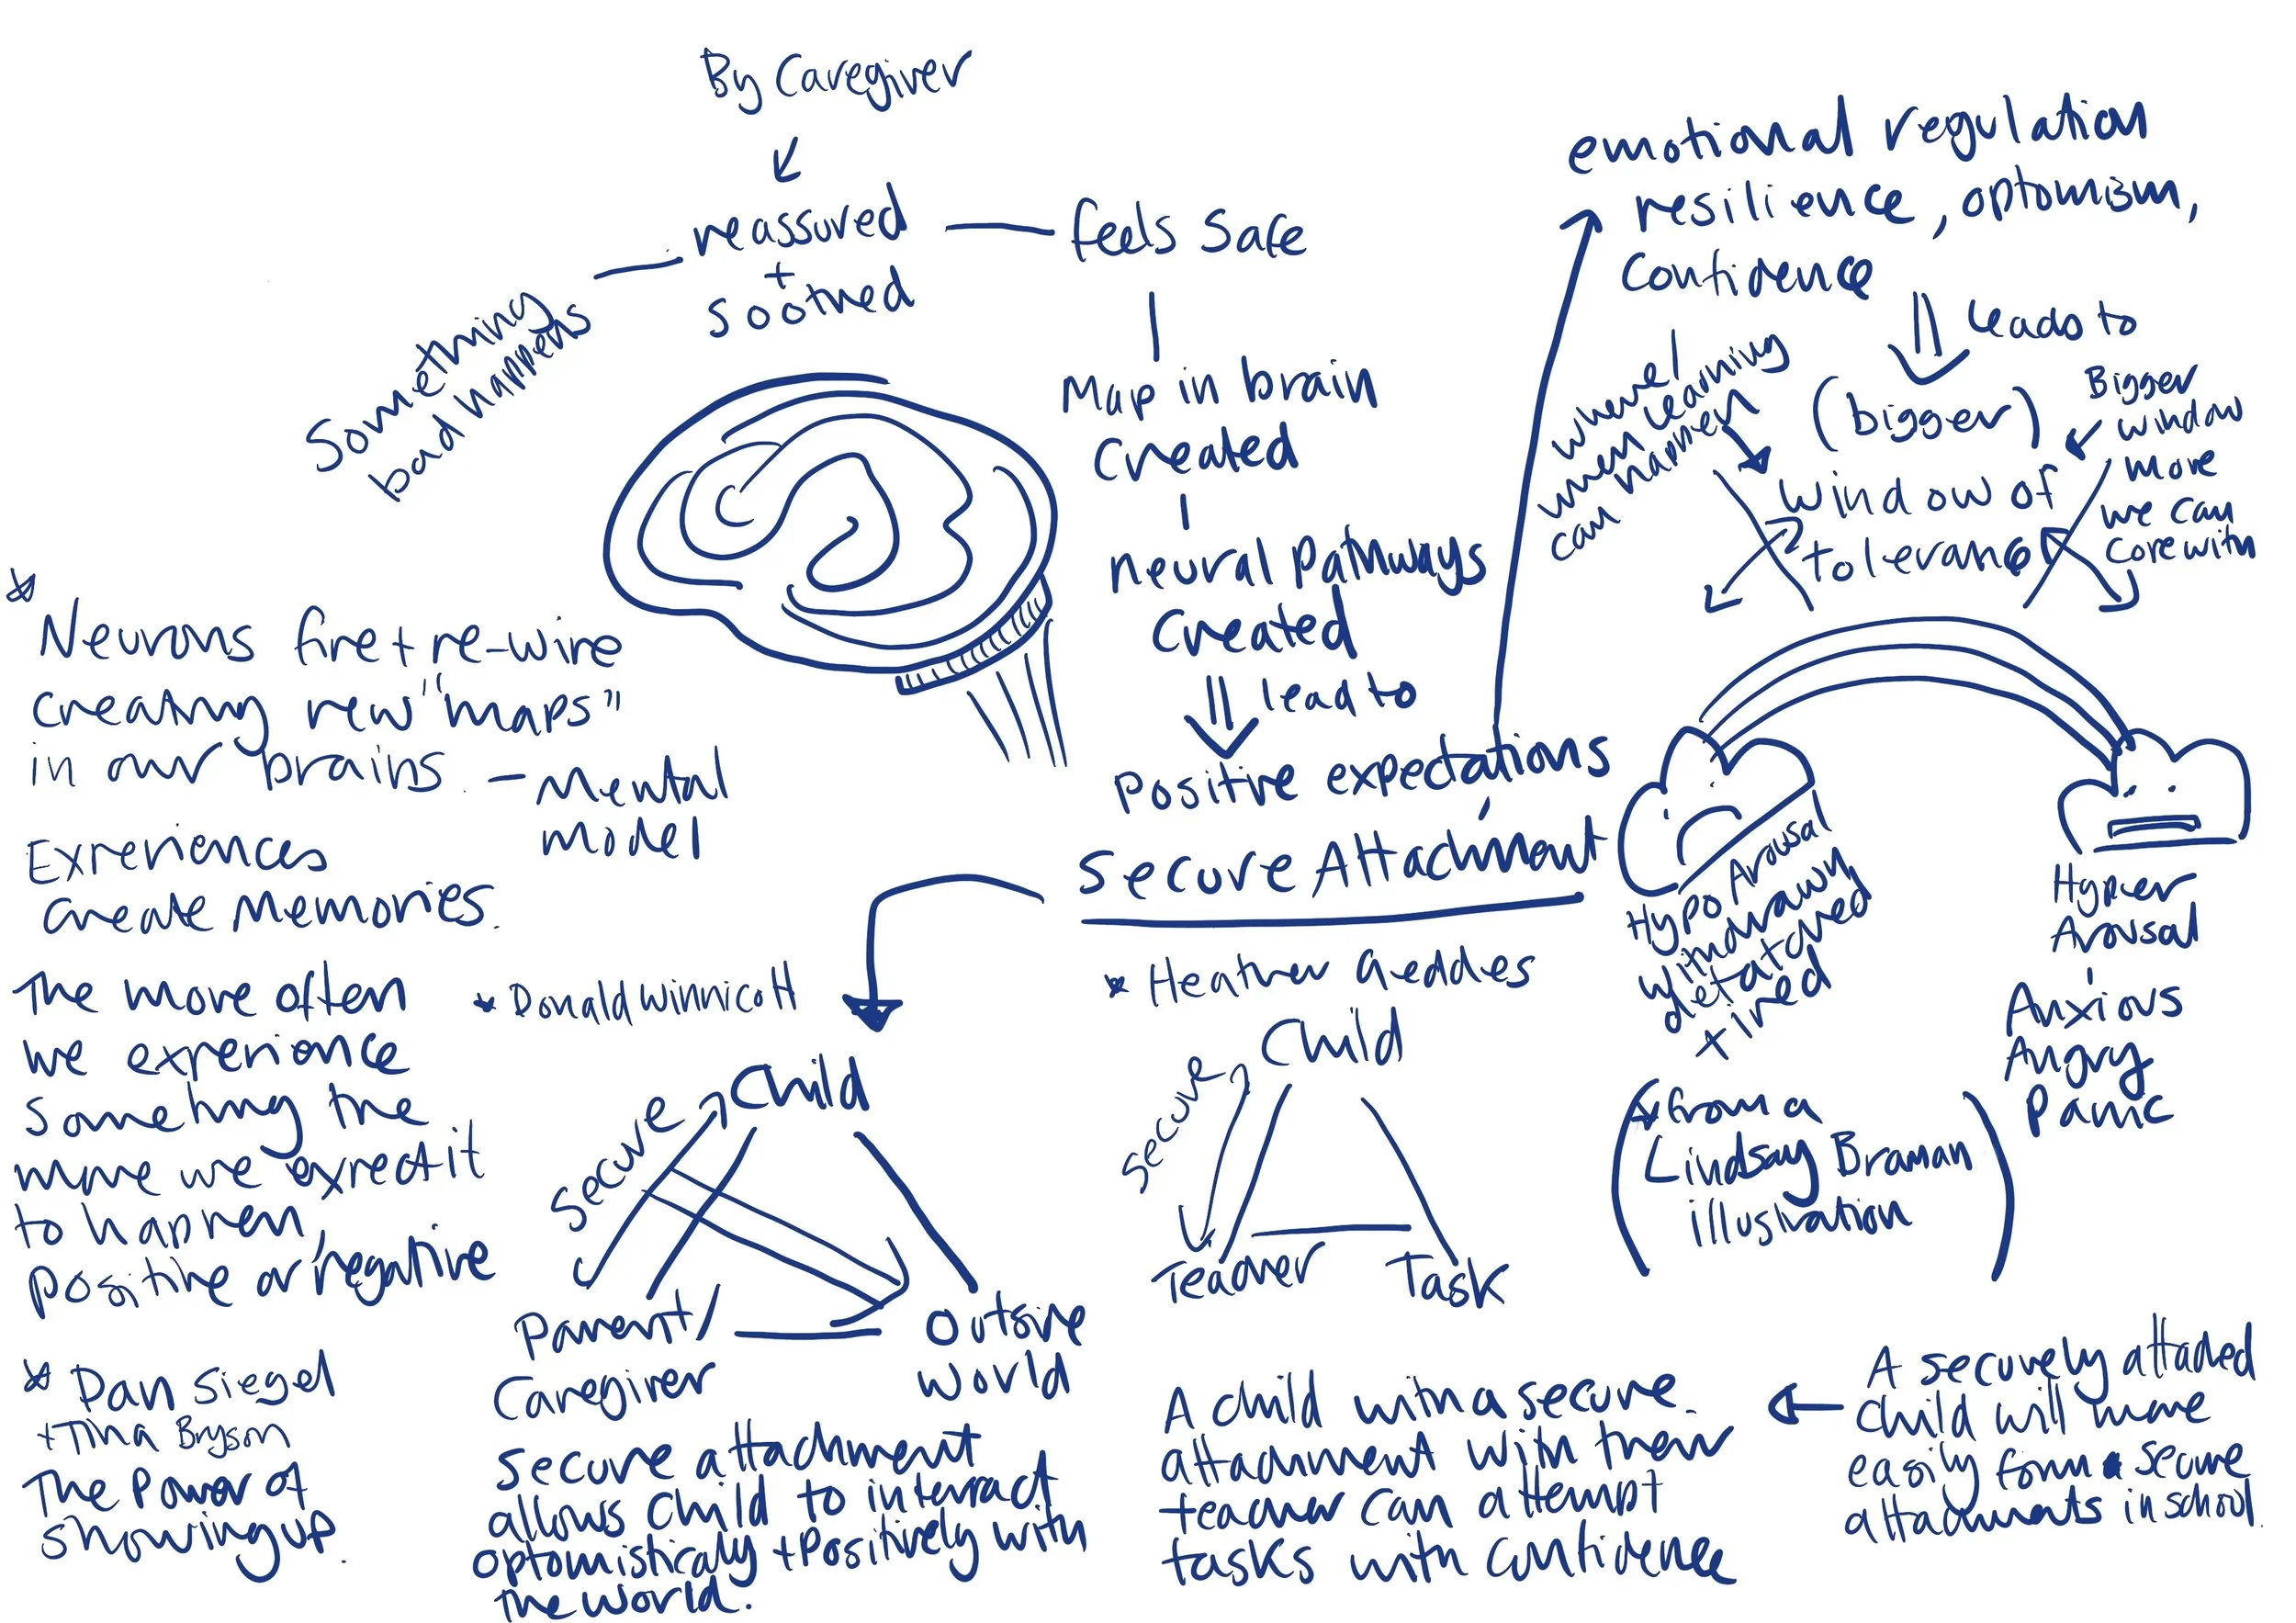 By Caregiver
reassured
+
soothed
feels safe
Something
bad happens
Map in brain
created
neural pathways
created
lead to
positive expectations
Secure Attachment
emotional regulation
resilience, optomism,
confidence
leads to
where/
when learning
can happen
(bigger)
window of
tolerance
Bigger
window
more
we can
cope with
Hypo Arousal
withdrawn
detatched
tired
Hyper
Arousal
Anxious
Angry
Panic
(* from a
Lindsay Braman
illustration)
*
Neurons fire + re-wire
creating new "maps"
in our brains. - Mental
model
Experiences
create memories.
The more often
we experience
something the
more we expect it
to happen,
positive or negative
* Dan Siegel
+ Tina Bryson
The Power of
Showing up.
* Donald Winnicott
Child
secure
Parent/
Caregiver
Outside
World
secure attachment
allows child to interract
optomisticaly + positively with
the world.
* Heather Geddes
Child
secure
Teacher
Task
A child with a secure
attachment with their
teacher can attempt
tasks with confidence
A securely attached
child will more
easily form secure
attachments in school.